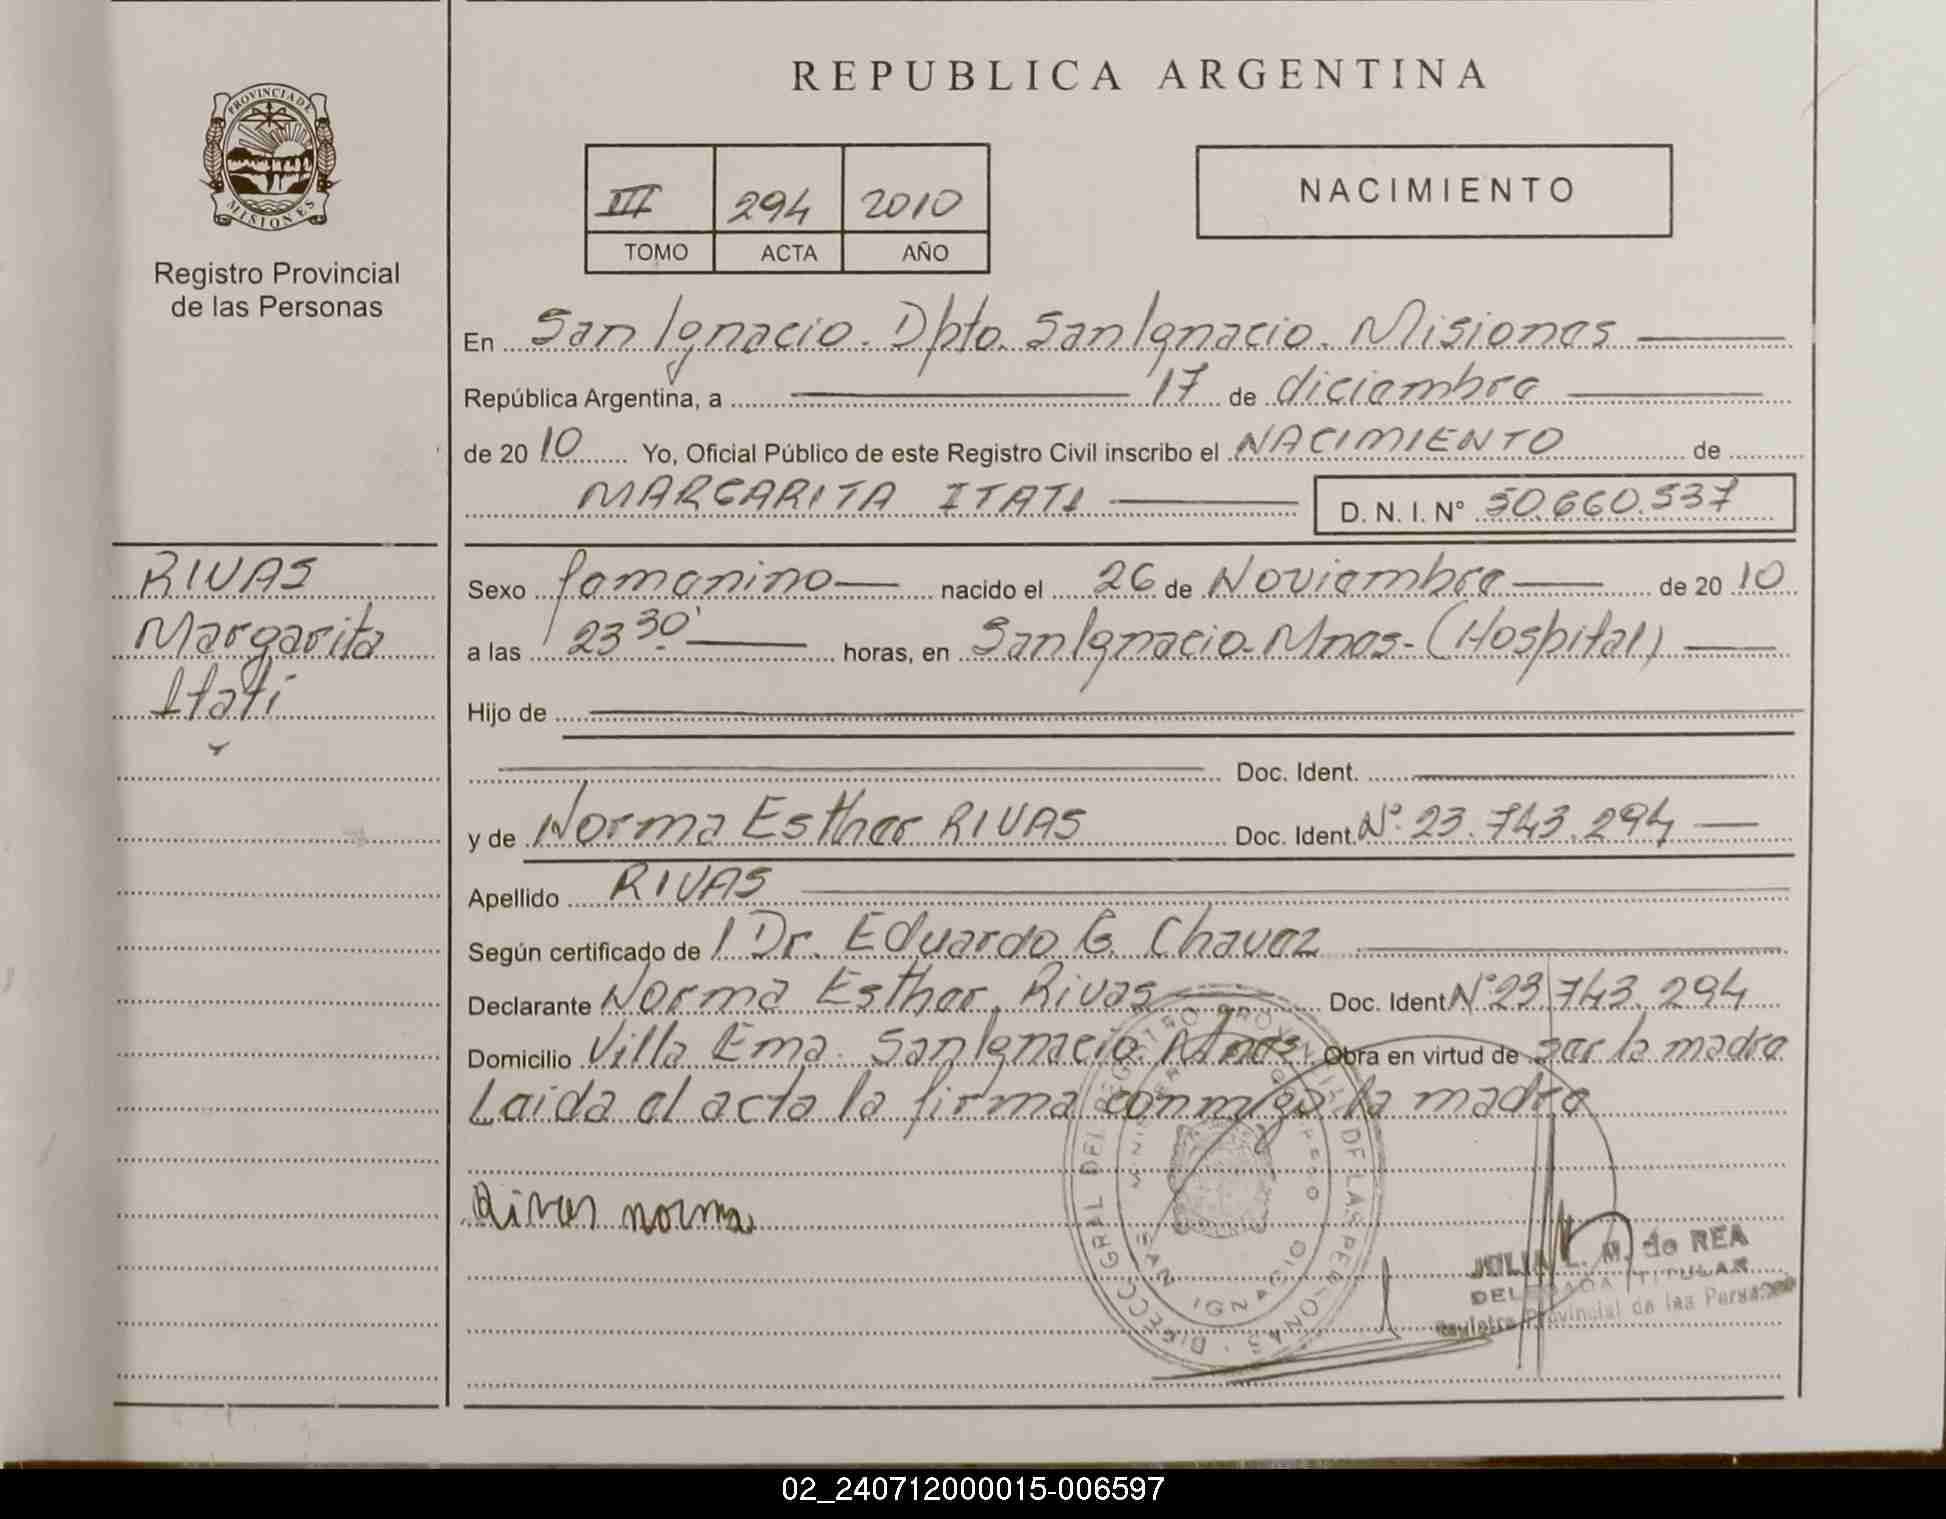 REPUBLICA ARGENTINA
PROVINCIA DE
MISIONES
Registro Provincial
de las Personas
III 294 2010
TOMO ACTA AÑO
NACIMIENTO
En San Ignacio. Dpto. San Ignacio. Misiones
República Argentina, a 17 de diciembre
de 2010 Yo, Oficial Público de este Registro Civil inscribo el NACIMIENTO de
MARGARITA ITATI D. N. I. N° 50.660.537
RIVAS
Margarita
Itatí
Sexo femenino nacido el 26 de Noviembre de 2010
a las 23 30' horas, en San Ignacio - Mnes - (Hospital)
Hijo de
Doc. Ident.
y de Norma Esther RIVAS Doc. Ident. N° 23.743.294
Apellido RIVAS
Según certificado de l Dr. Eduardo G. Chavez
Declarante Norma Esther Rivas Doc. Ident N° 23.743.294
Domicilio Villa Ema. San Ignacio. Mnes. Obra en virtud de ser la madre
Leida el acta la firma conmigo la madre
Rivas norma
DIRECC. GRAL DEL REGISTRO PROVINCIAL DE LAS PERSONAS
SAN IGNACIO
JULIA L. M. de REA
DELEGADA TITULAR
Registro Provincial de las Personas
02_240712000015-006597